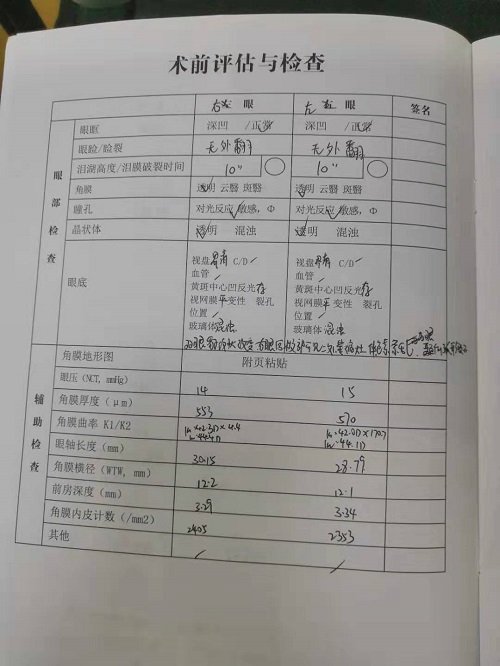 术前评估与检查
右 眼 左 眼 签名
眼部检查
眼眶 深凹 /正常 深凹 /正常
眼睑/睑裂 无外翻 无外翻
泪湖高度/泪膜破裂时间 10" 10"
角膜 透明 云翳 斑翳 透明 云翳 斑翳
瞳孔 对光反应/敏感,Φ 对光反应/敏感,Φ
晶状体 透明 混浊 透明 混浊
眼底
视盘 C/D / 视盘 C/D /
血管 / 血管 /
黄斑中心凹反光存 黄斑中心凹反光存
视网膜平 变性 裂孔 视网膜平 变性 裂孔
位置 / 位置 /
玻璃体混浊 玻璃体混浊
双眼
辅助检查
角膜地形图 附页粘贴
眼压(NCT, mmHg) 14 15
角膜厚度(μm) 553 570
角膜曲率 K1/K2
眼轴长度(mm) 30.15 28.79
角膜横径(WTW, mm) 12.2 12.1
前房深度(mm) 3.29 3.34
角膜内皮计数(/mm2) 2405 2353
其他 / /